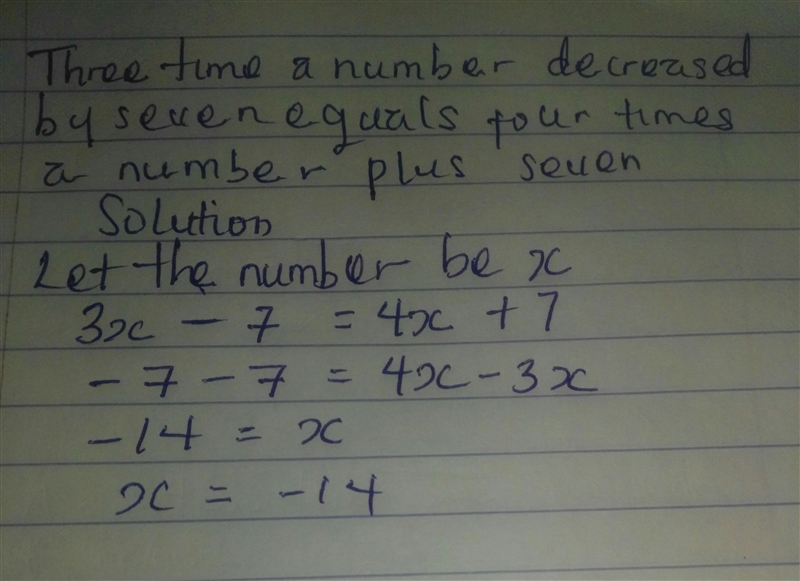 Three time a number decreased
by seven equals four times
a number plus seven
Solution
Let the number be x
3x - 7 = 4x + 7
- 7 - 7 = 4x - 3x
- 14 = x
x = - 14